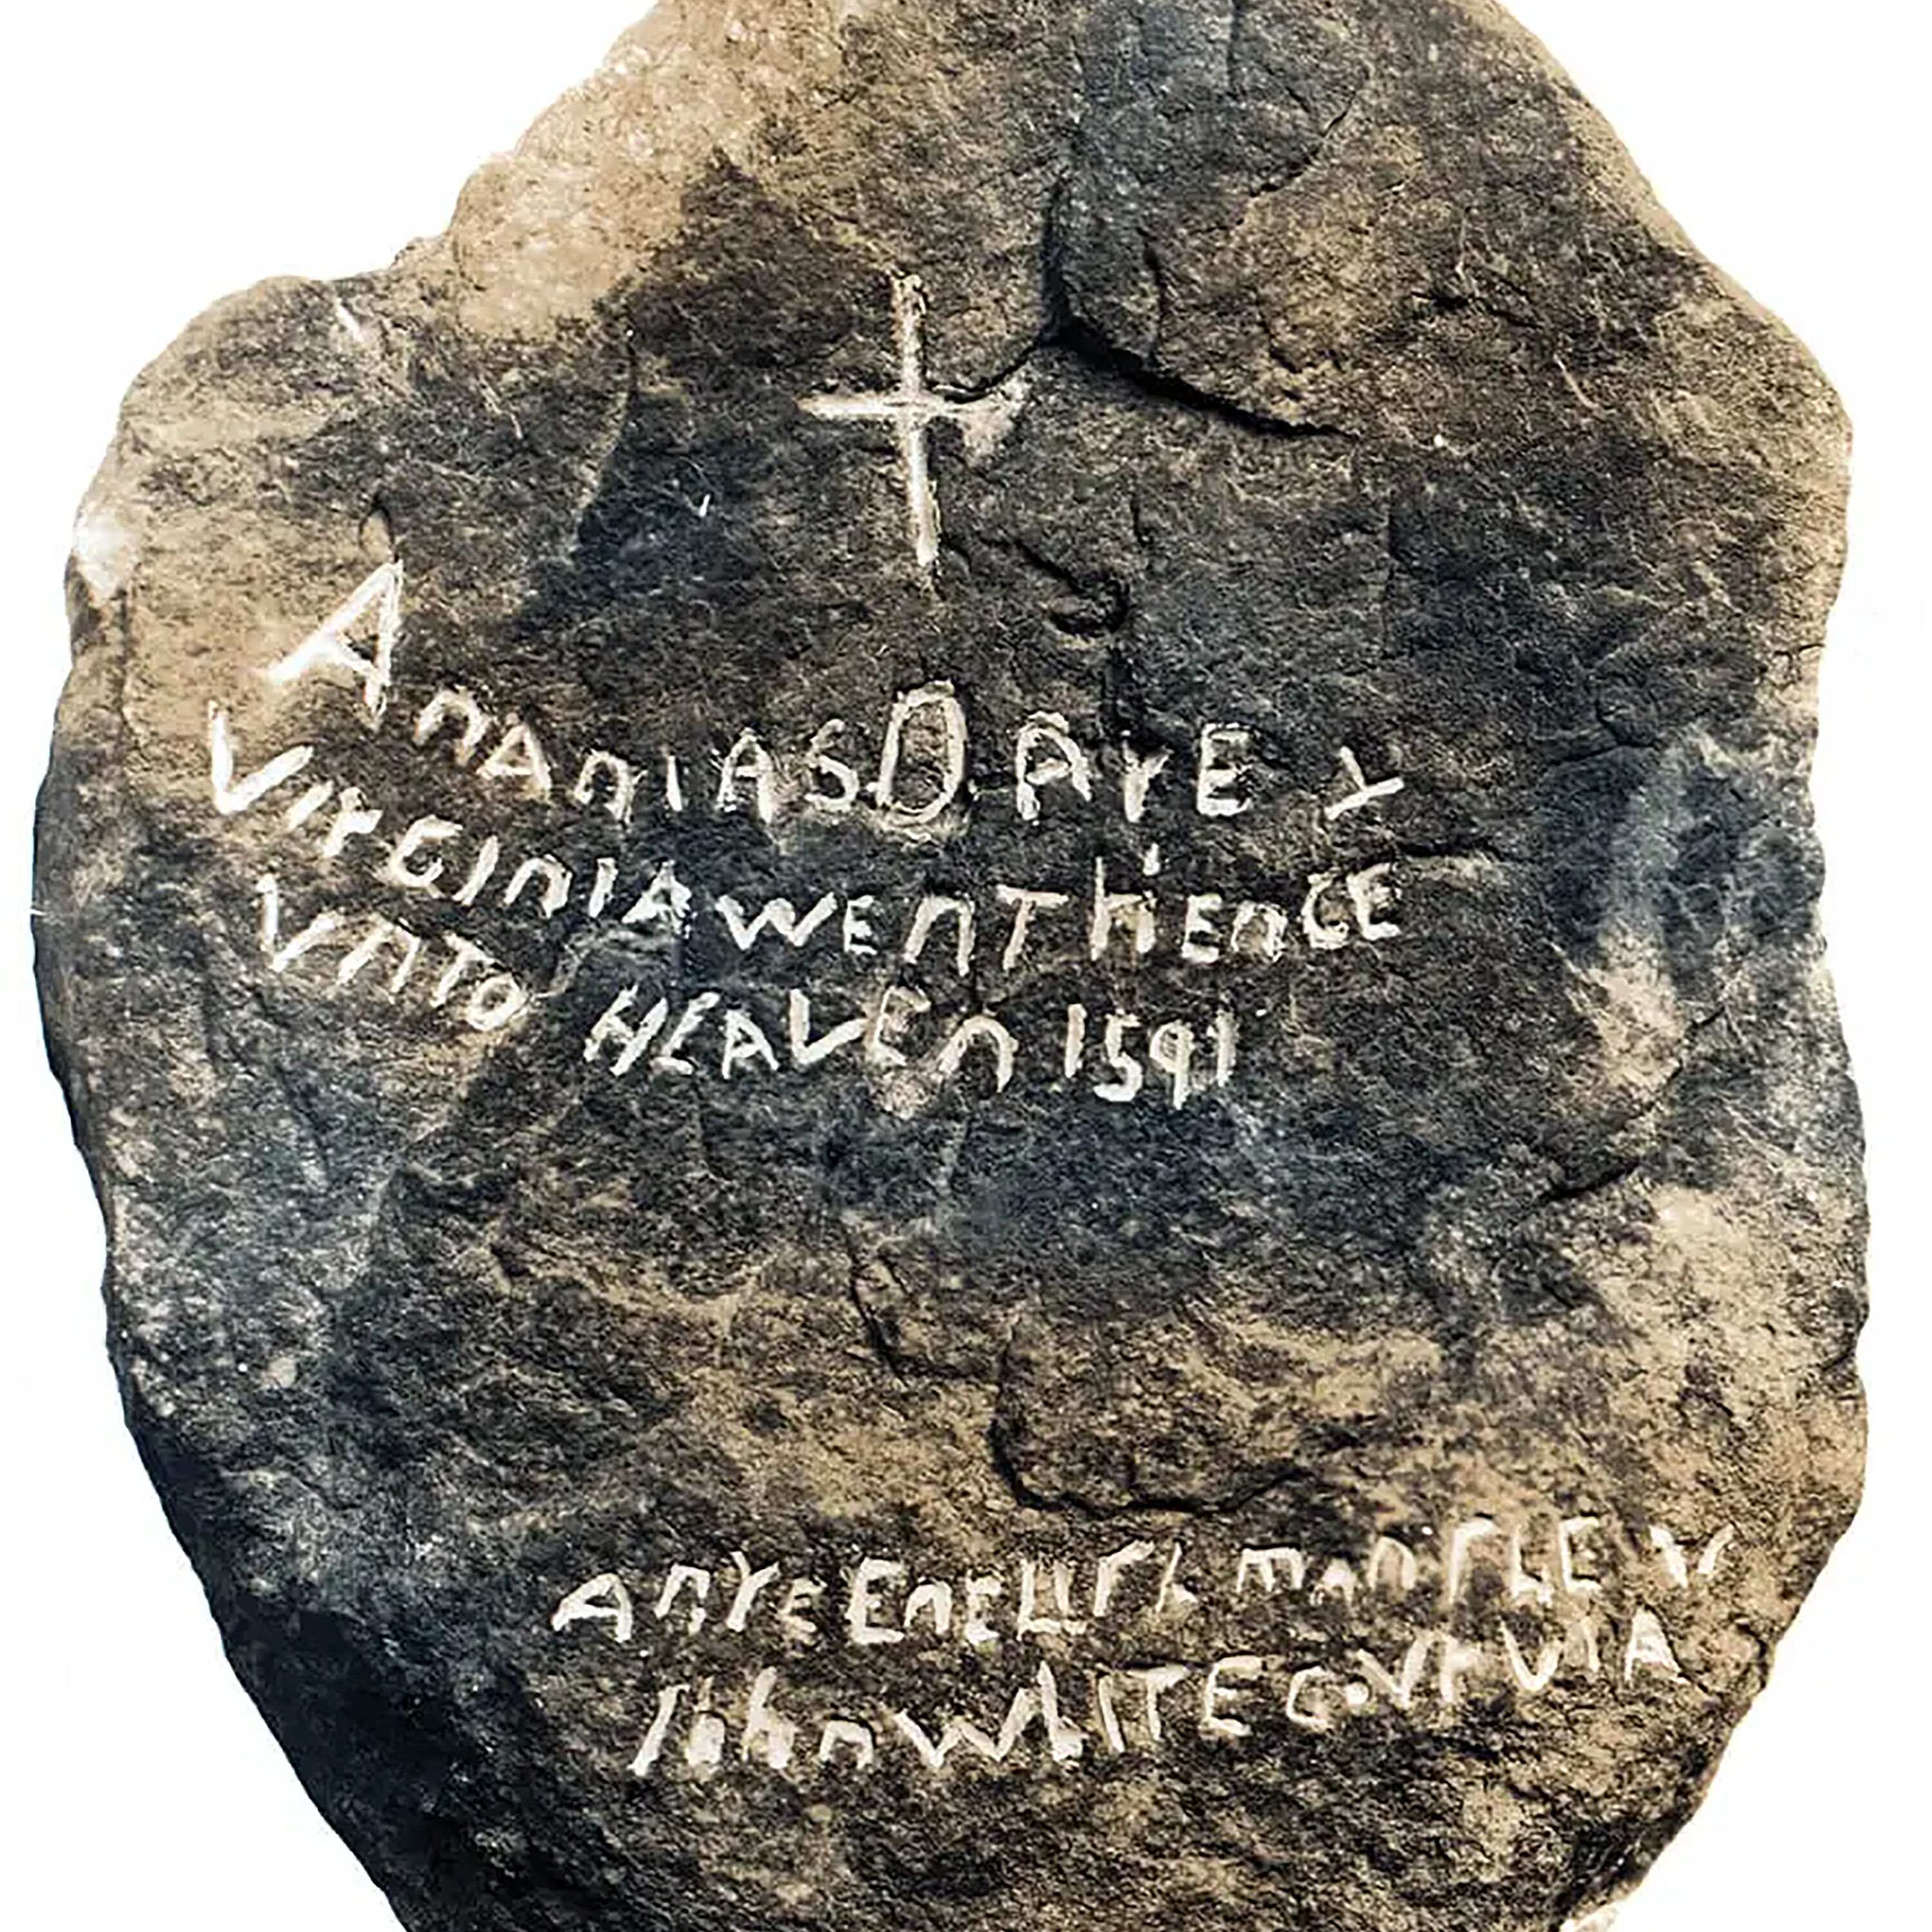 AnAnIAS DArE &
VIrGInIA WEnT hEnCE
VnTO HEAVEn 1591
AnYE EnGLIShMAn ShEW
John WhITE GOVr VIA